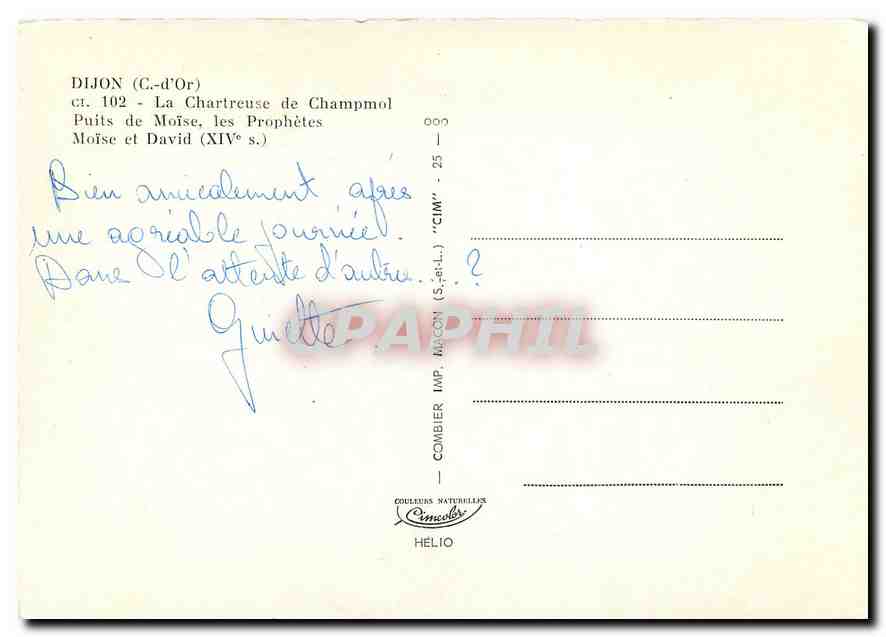 DIJON (C.-d'Or)
CT. 102 - La Chartreuse de Champmol
Puits de Moïse, les Prophètes
Moïse et David (XIVe s.)
Bien amicalement après
une agréable journée.
Dans l'attente d'autres...?
Guiette
COMBIER IMP. MACON (S.-et-L.) "CIM" - 25 - 000
COULEURS NATURELLES
Cimcolor
HÉLIO
CPAPHIL